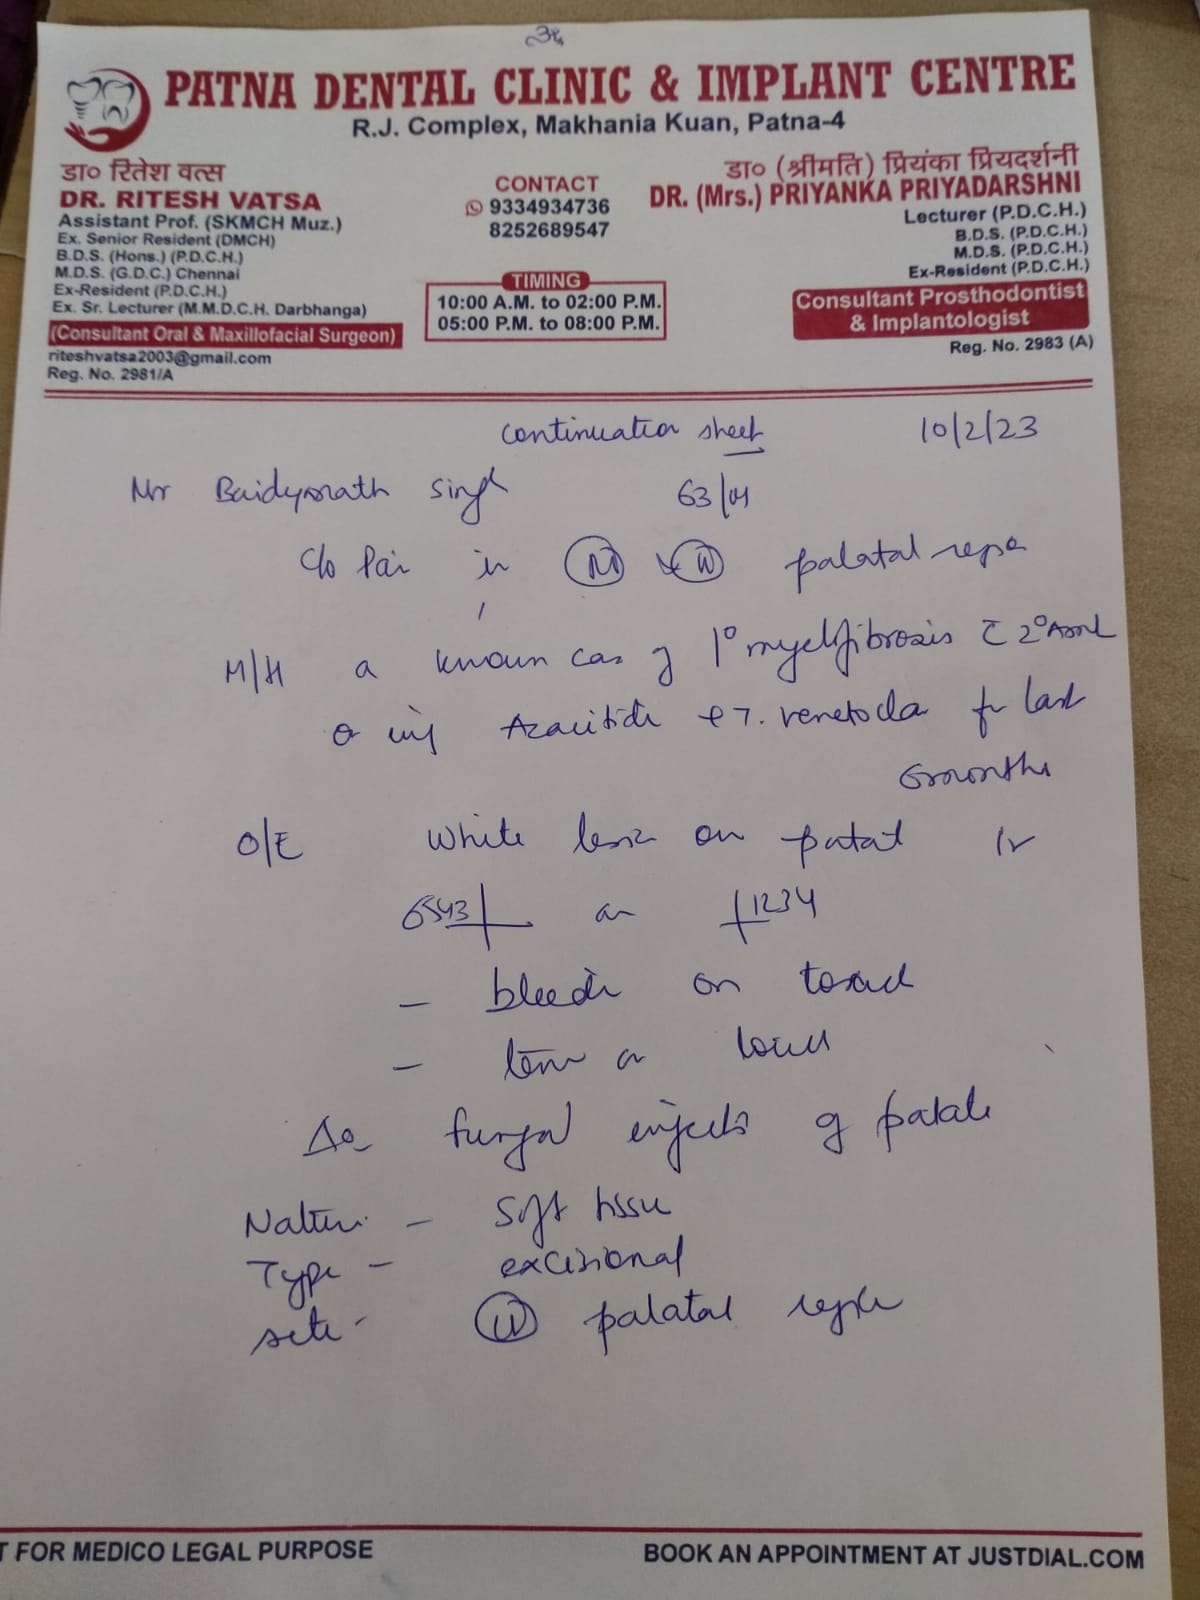 PATNA DENTAL CLINIC & IMPLANT CENTRE
R.J. Complex, Makhania Kuan, Patna-4
डा० रितेश वत्स
DR. RITESH VATSA
Assistant Prof. (SKMCH Muz.)
Ex. Senior Resident (DMCH)
B.D.S. (Hons.) (P.D.C.H.)
M.D.S. (G.D.C.) Chennai
Ex-Resident (P.D.C.H.)
Ex. Sr. Lecturer (M.M.D.C.H. Darbhanga)
(Consultant Oral & Maxillofacial Surgeon)
riteshvatsa2003@gmail.com
Reg. No. 2981/A
CONTACT
9334934736
8252689547
TIMING
10:00 A.M. to 02:00 P.M.
05:00 P.M. to 08:00 P.M.
डा० (श्रीमति) प्रियंका प्रियदर्शनी
DR. (Mrs.) PRIYANKA PRIYADARSHNI
Lecturer (P.D.C.H.)
B.D.S. (P.D.C.H.)
M.D.S. (P.D.C.H.)
Ex-Resident (P.D.C.H.)
Consultant Prosthodontist
& Implantologist
Reg. No. 2983 (A)
continuation sheet 10/2/23
Mr Baidyanath Singh 63/M
c/o Pain in palatal region
M/H a known case of 1° myelofibrosis c̄ 2° AML
on inj Azacitidine & T. venetocla for last
6 months
O/E White lesion on palatal
6543 1234
- bleeding on touch
- touch
fungal infection of palate
Nature - Soft tissue
Type - excisional
site - palatal region
T FOR MEDICO LEGAL PURPOSE
BOOK AN APPOINTMENT AT JUSTDIAL.COM